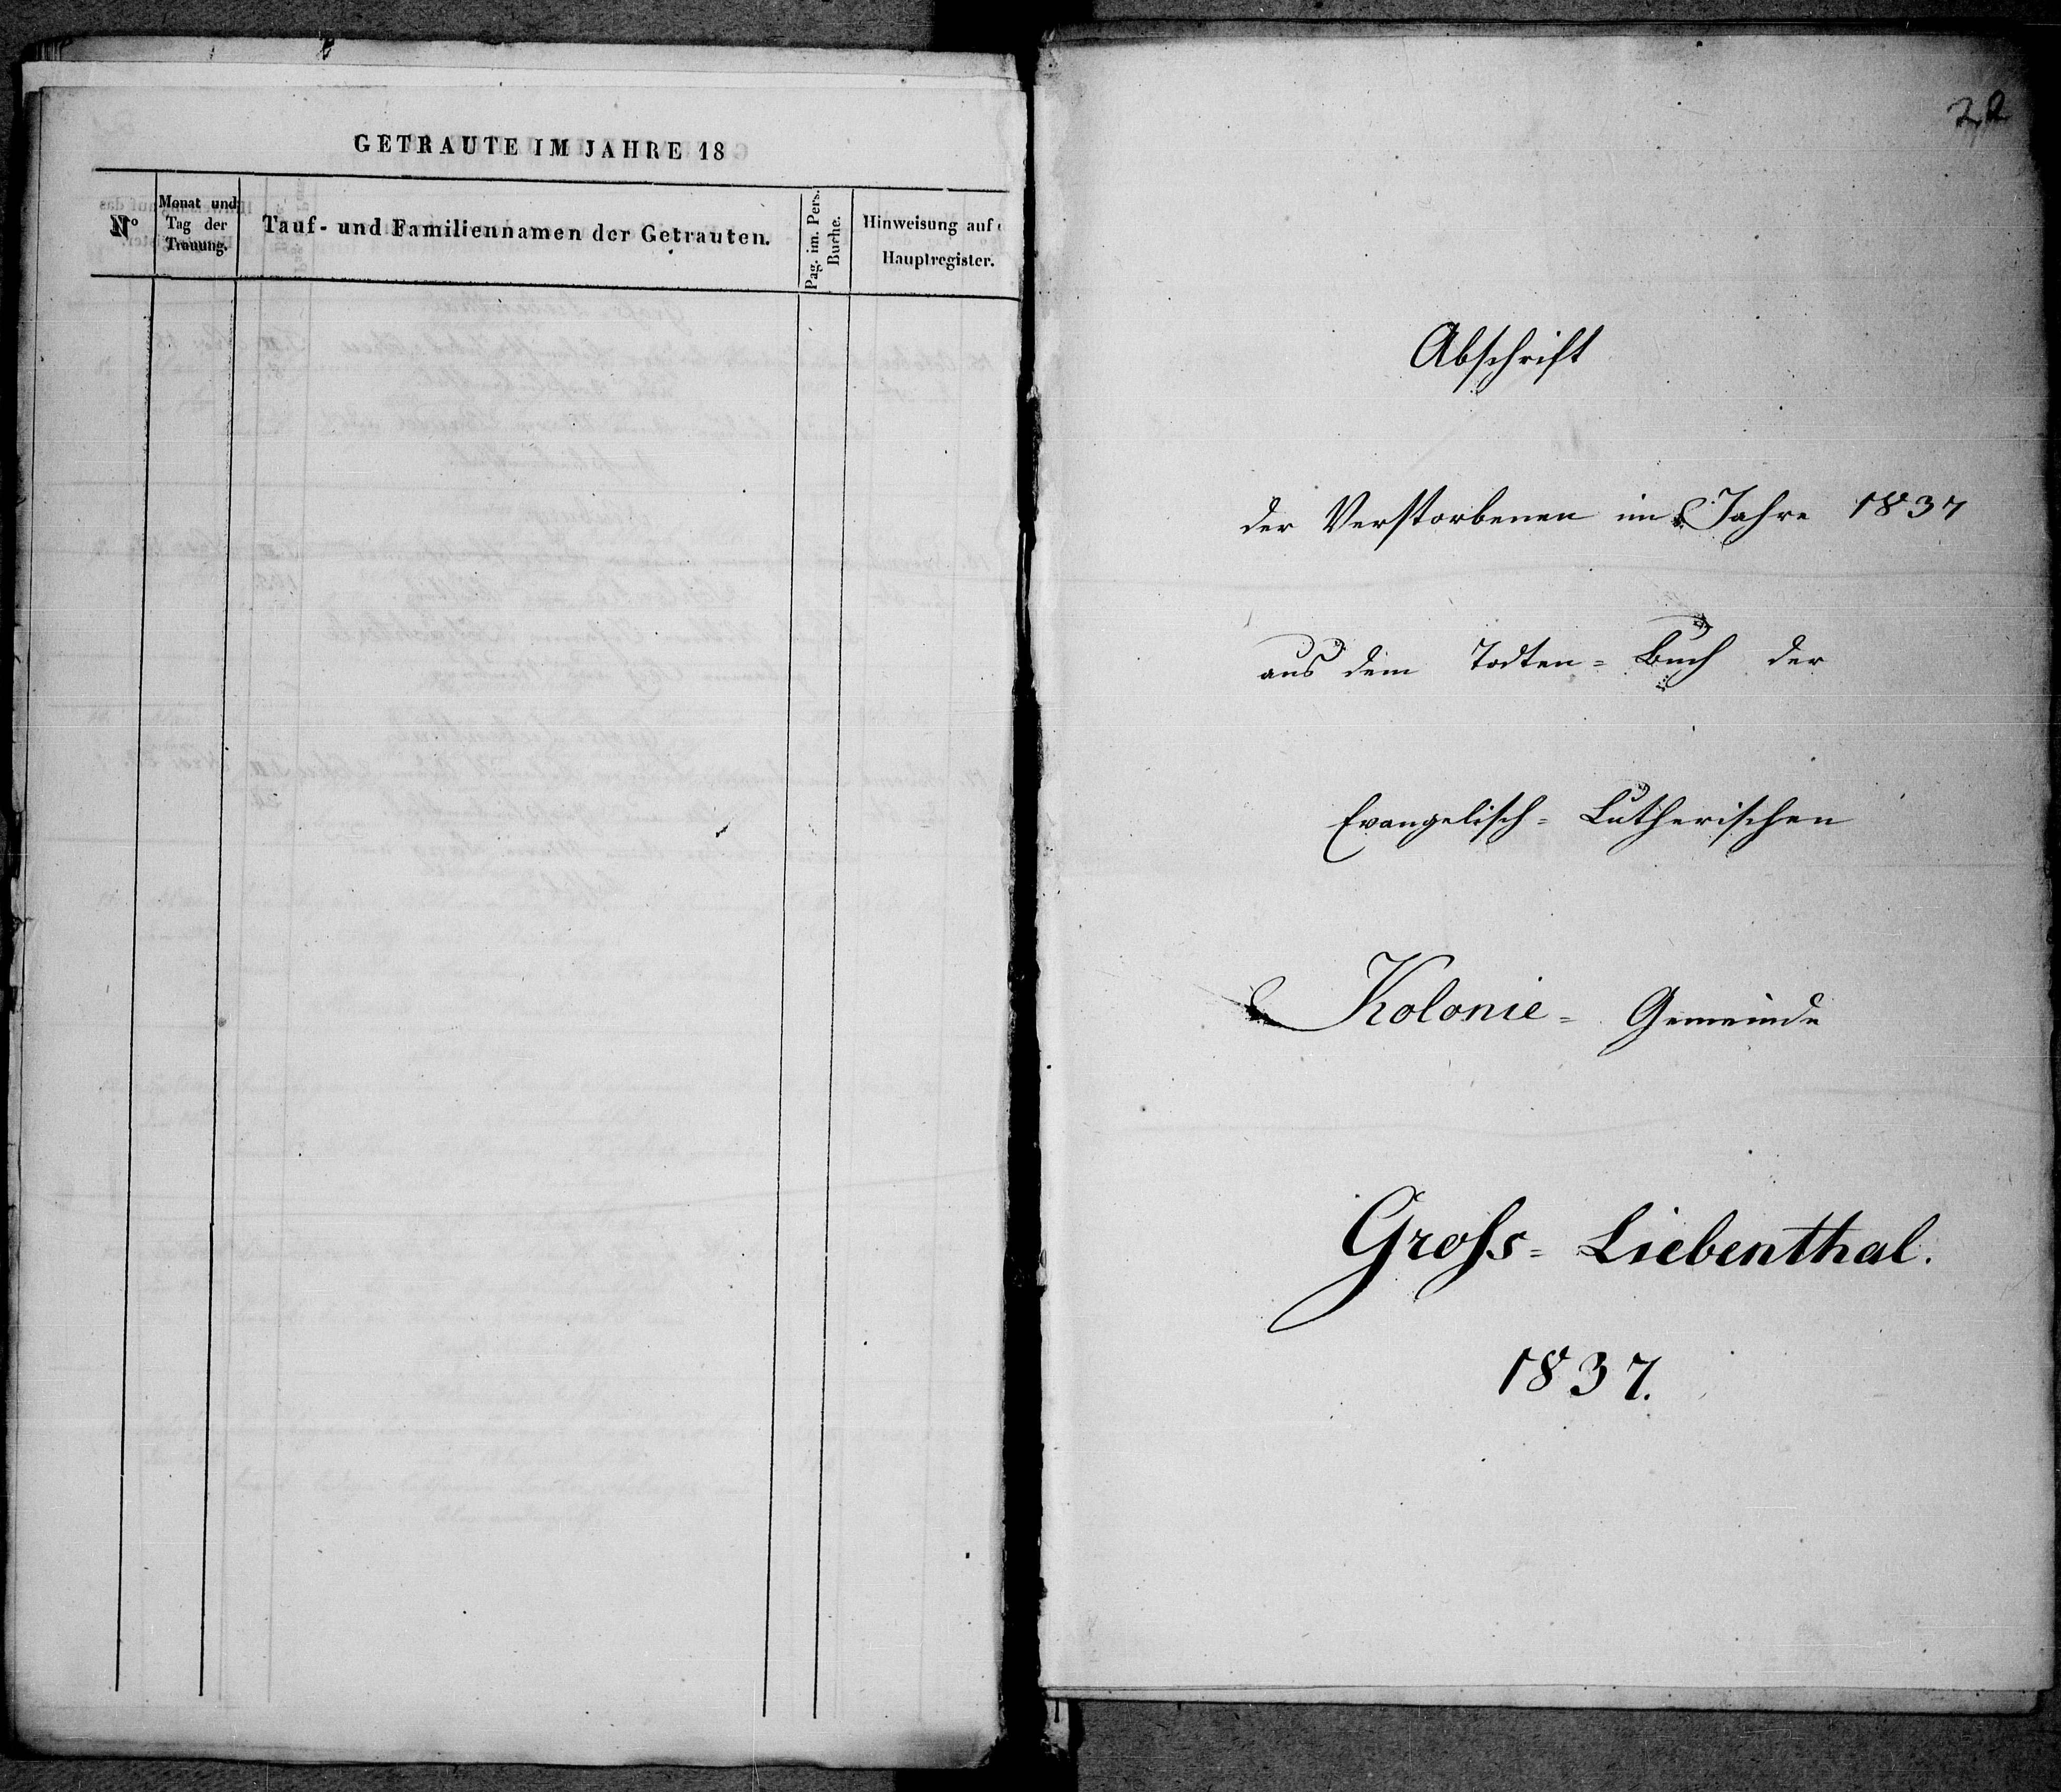 GETRAUTE IM JAHRE 18
No
Monat und Tag der Trauung.
Tauf- und Familiennamen der Getrauten.
Pag. im. Pers. Buche.
Hinweisung auf
Hauptregister.
22
Abschrift
der Verstorbenen im Jahre 1837
aus dem Todten= Buch der
Evangelisch= Lutherischen
Kolonie= Gemeinde
Groſs= Liebenthal.
1837.